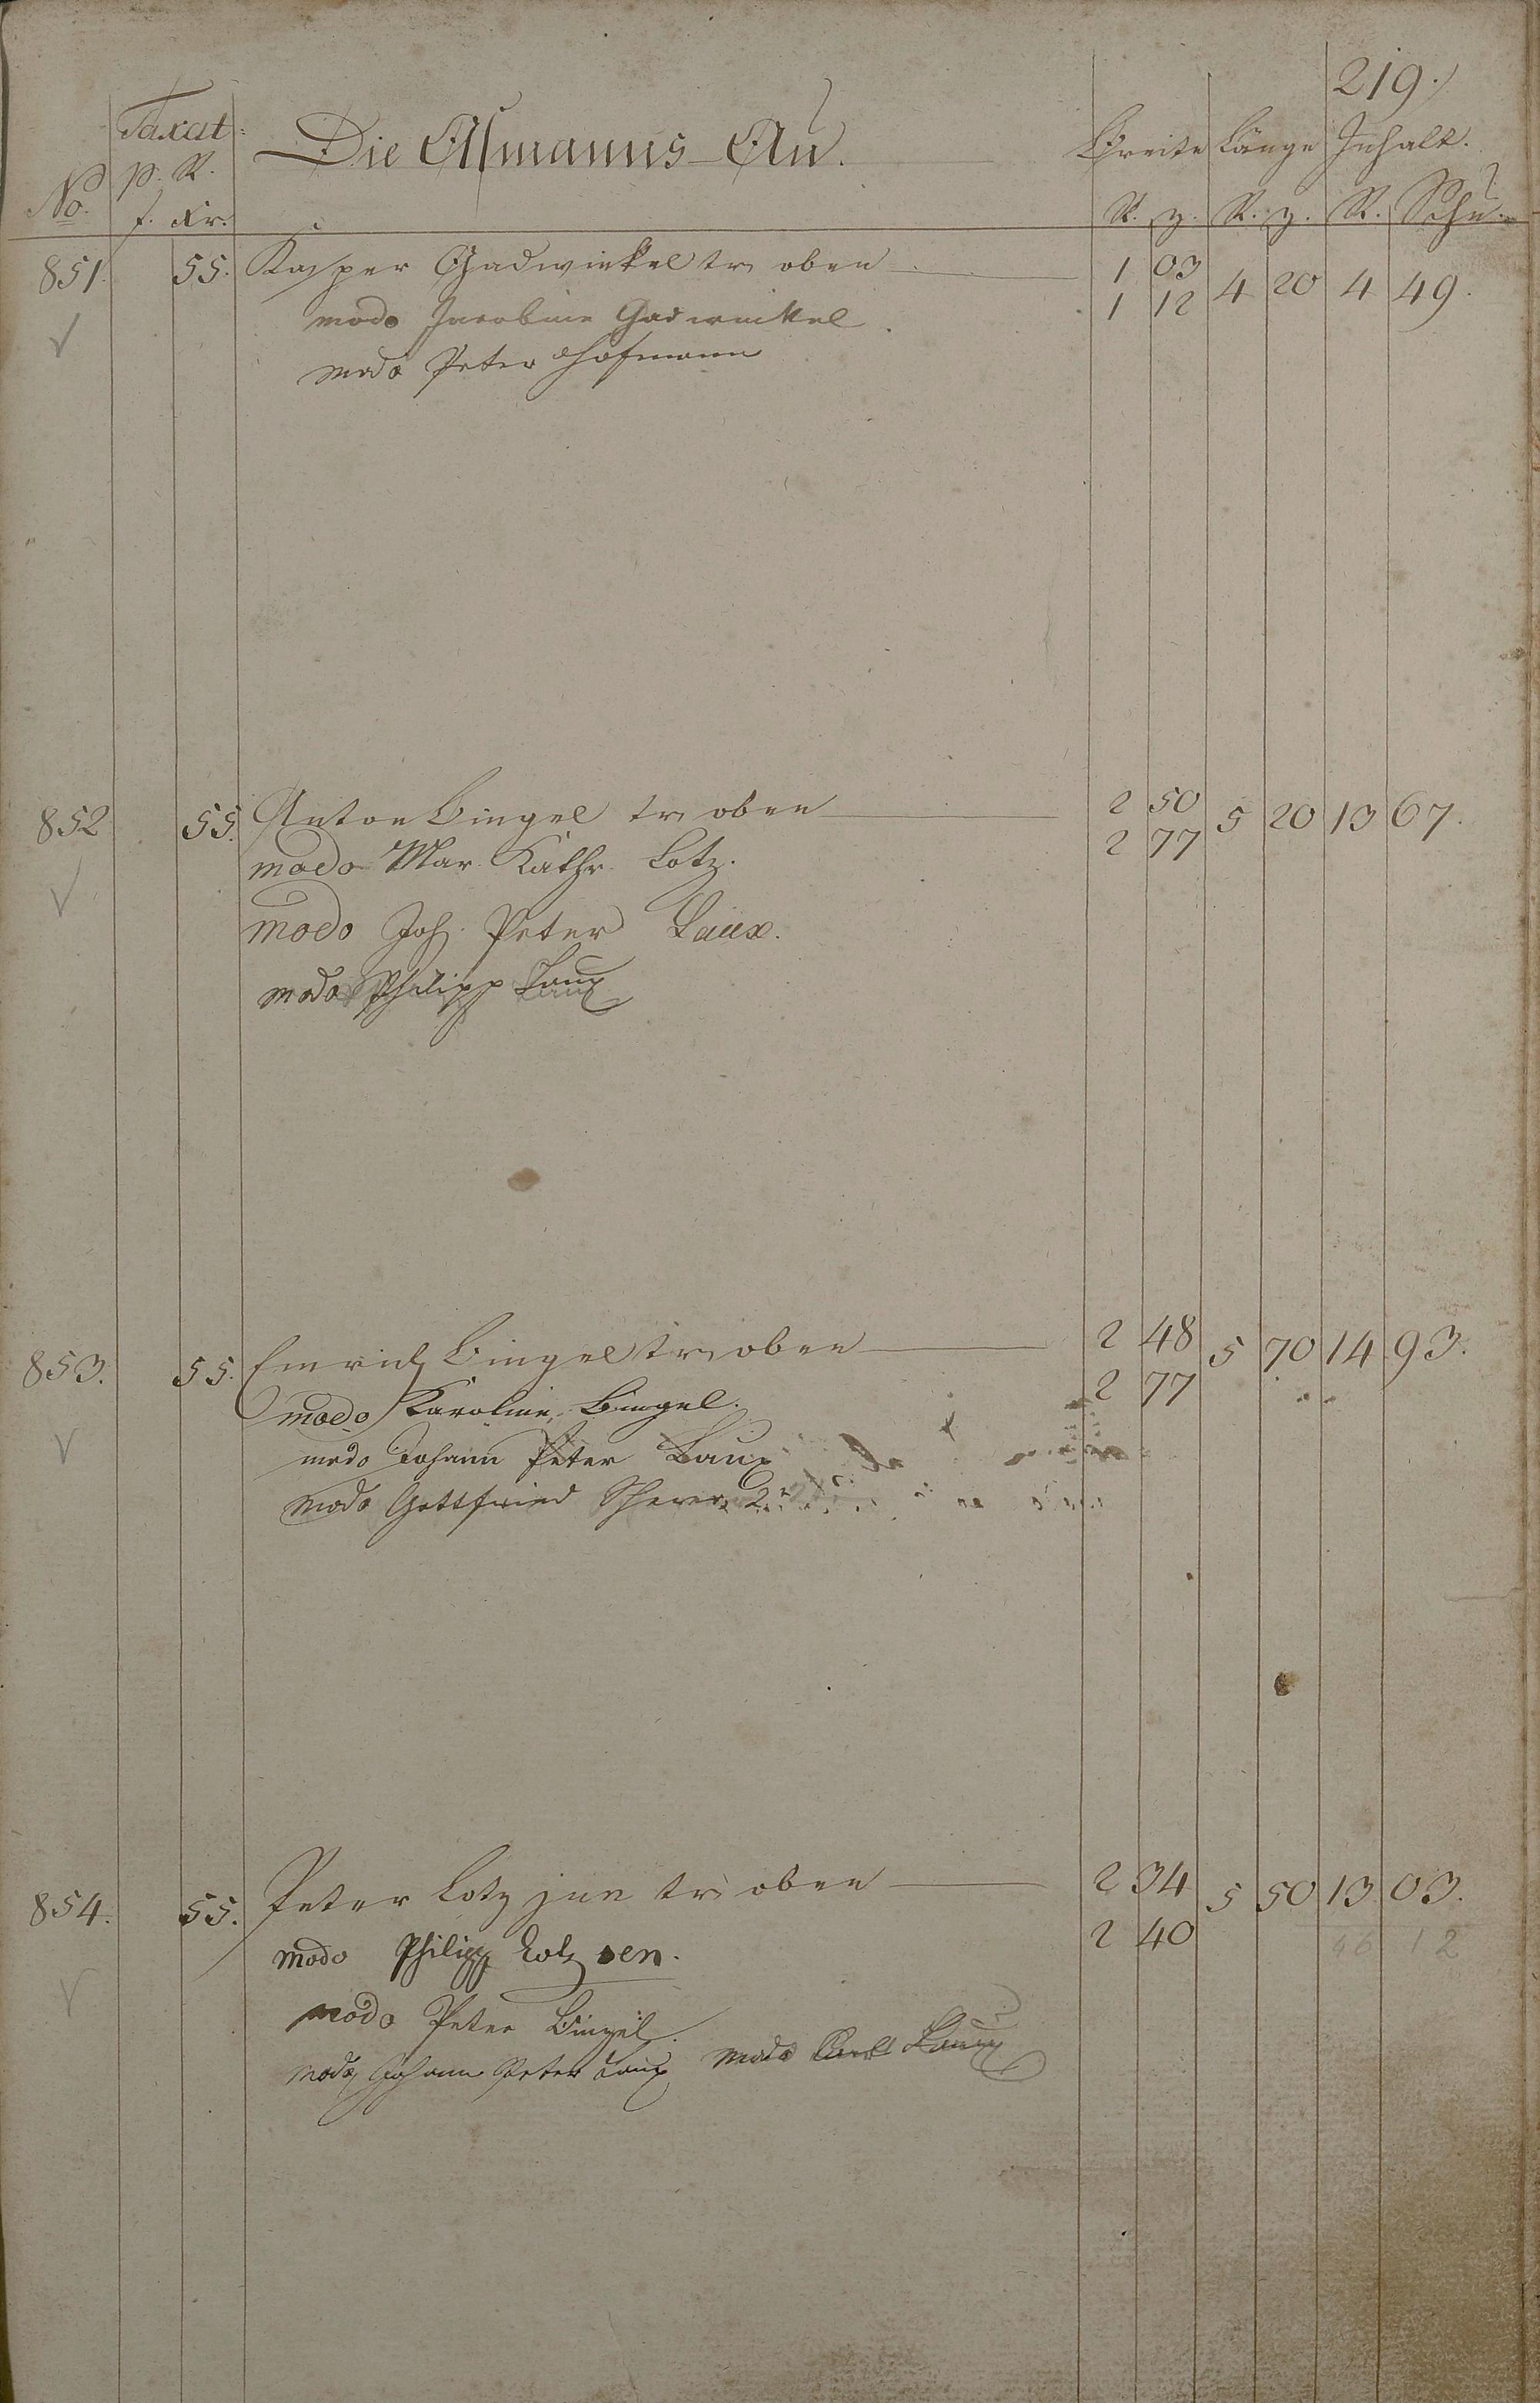 219.
Taxat:
Die Assmanns-Au.
Breite Länge Inhalt.
No. p. R.
f. Kr.
R. z. R. z. R. Schu
851. 55. Kasper Gadwinkel tr oben 1 03 4 20 4 49.
1 12
modo Jacobine Gadwinkel
modo Peter Hofmann
852 55. Anton Bingel tr oben 2 50 5 20 13 67.
2 77
modo Mar. Kathr. Lotz.
modo Joh. Peter Laux.
modo Philipp Laux
853. 55. Emrich Bingel tr oben 2 48 5 70 14 93.
2 77
modo Karoline Bingel.
modo Johann Peter Laux
modo Gottfried Scherer 2r
854. 55. Peter Lotz jun tr oben 2 34 5 50 13 03.
2 40 46 12
modo Philipp Lotz sen.
modo Peter Bingel.
modo Johann Peter Laux modo Karl Laux